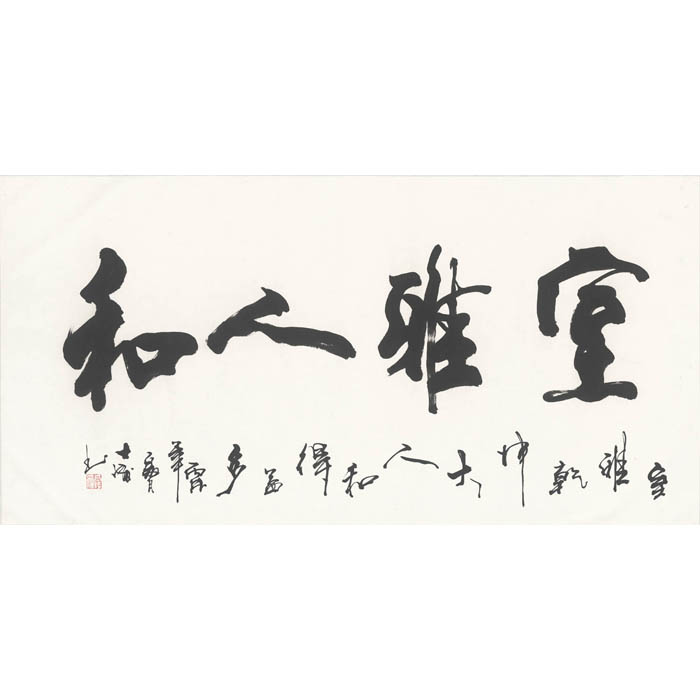 室雅人和
室雅乾坤大人和得益多